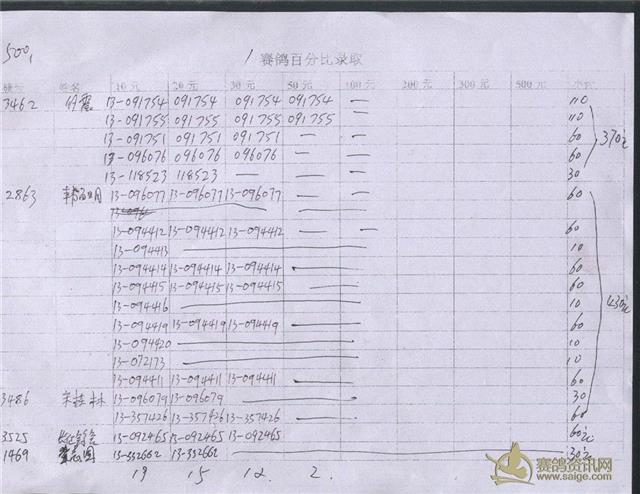 500,
1 赛鸽百分比录取
姓名 10元 20元 30元 50元 100元 200元 300元 500元
3462 13-091754 091754 091754 091754 — 110
13-091755 091755 091755 091755 — 110
13-091751 091751 091751 — — 60
370元
13-096076 096076 096076 — — 60
13-118523 118523 — — — 30
2863 13-096077 13-096077 13-096077 — — 60
13-094412 13-094412 13-094412 — — 60
13-094413 10
13-094414 13-094414 13-094414 60
13-094415 13-094415 13-094415 60
13-094416 10
430元
13-094419 13-094419 13-094419 60
13-094420 10
13-072173 10
13-094411 13-094411 13-094411 60
3486 林 13-096079 13-096079 30
13-357426 13-357426 13-357426 60
3525 13-092465 13-092465 13-092465 60元
1469 13-352662 13-352662 30元
19 15 12 2.
赛鸽资讯网
www.saige.com